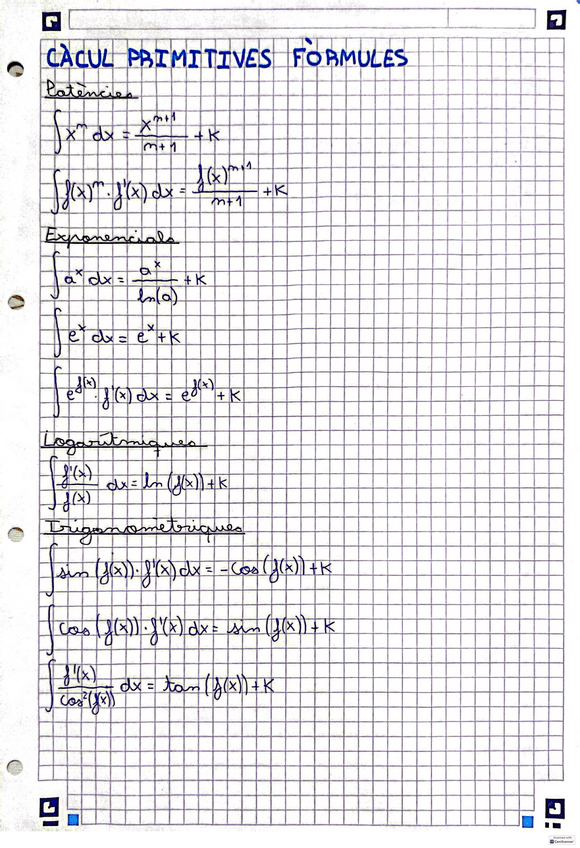 CÀCUL PRIMITIVES FÒRMULES
Potències
∫ x^m dx = x^(m+1)/(m+1) + K
∫ f(x)^m · f'(x) dx = f(x)^(m+1)/(m+1) + K
Exponencials
∫ a^x dx = a^x/ln(a) + K
∫ e^x dx = e^x + K
∫ e^f(x) · f'(x) dx = e^f(x) + K
Logarítmiques
∫ f'(x)/f(x) dx = ln (f(x)) + K
Trigonomètriques
∫ sin (f(x)) · f'(x) dx = -cos (f(x)) + K
∫ cos (f(x)) · f'(x) dx = sin (f(x)) + K
∫ f'(x)/cos²(f(x)) dx = tan (f(x)) + K
CamScanner